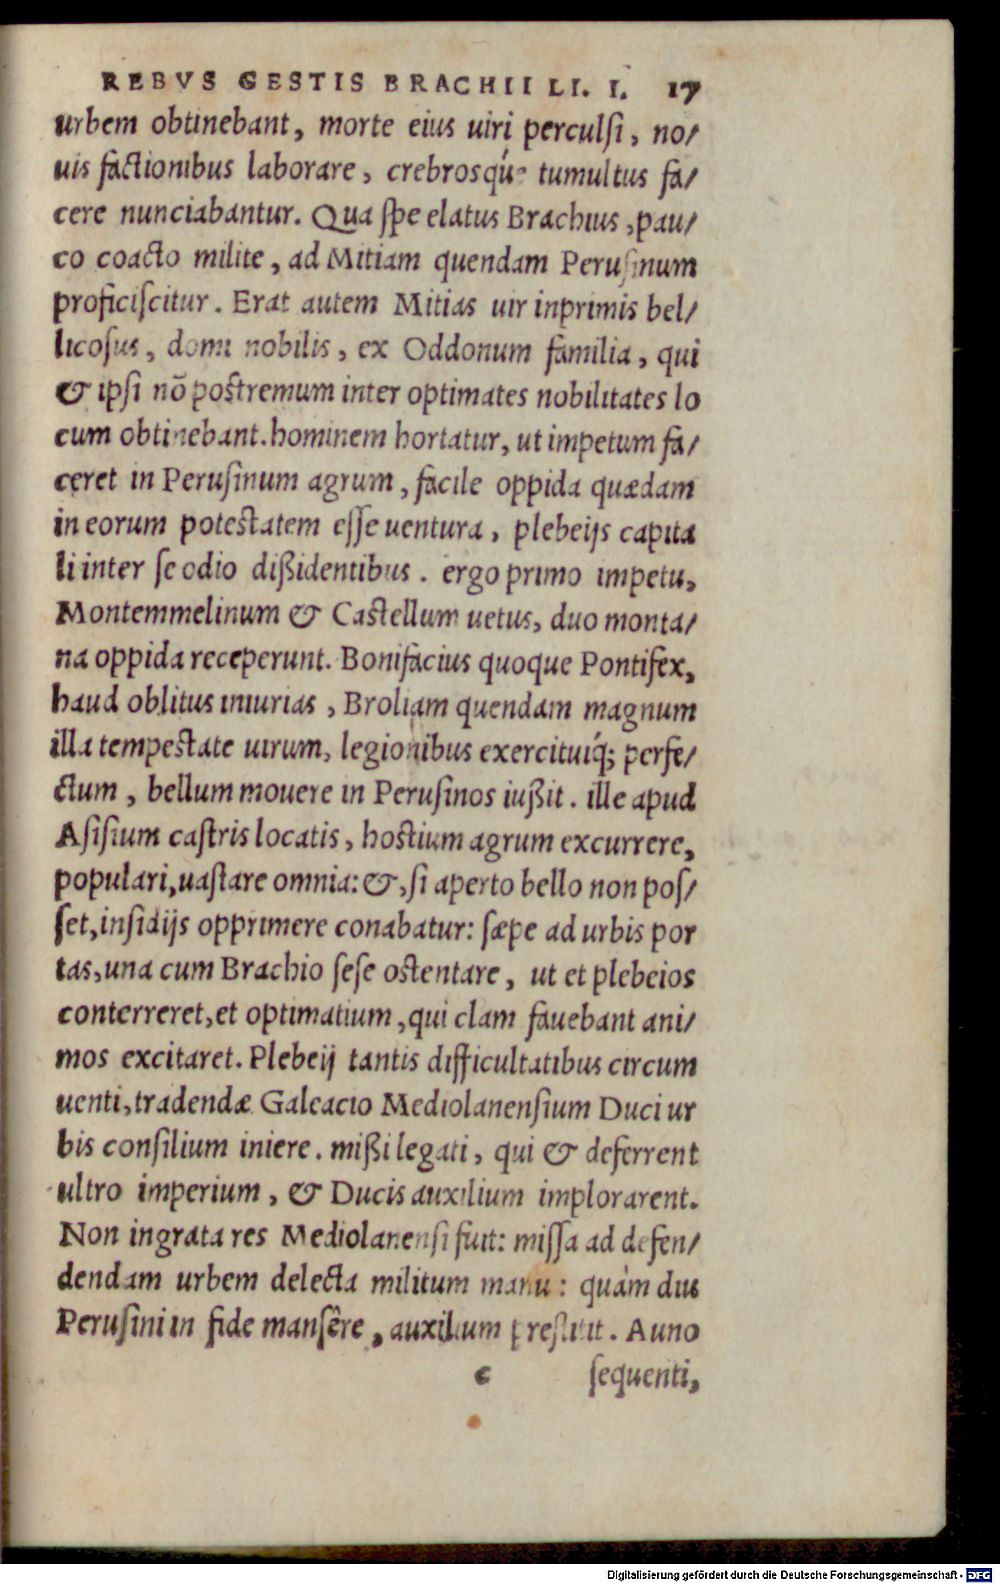 REBVS GESTIS BRACHII LI. I. 17
urbem obtinebant, morte eius uiri perculsi, no/
uis factionibus laborare, crebrosq́ue tumultus fa/
cere nunciabantur. Qua spe elatus Brachius, pau/
co coacto milite, ad Mitiam quendam Perusinum
proficiscitur. Erat autem Mitias uir inprimis bel/
licosus, domi nobilis, ex Oddonum familia, qui
& ipsi nō postremum inter optimates nobilitates lo
cum obtinebant. hominem hortatur, ut impetum fa/
ceret in Perusinum agrum, facile oppida quædam
in eorum potestatem esse uentura, plebeijs capita
li inter se odio dißidentibus. ergo primo impetu,
Montemmelinum & Castellum uetus, duo monta/
na oppida receperunt. Bonifacius quoque Pontifex,
haud oblitus iniurias, Broliam quendam magnum
illa tempestate uirum, legionibus exercituiq́; perfe/
ctum, bellum mouere in Perusinos iußit. ille apud
Asisium castris locatis, hostium agrum excurrere,
populari, uastare omnia: &, si aperto bello non pos/
set, insidijs opprimere conabatur: sæpe ad urbis por
tas, una cum Brachio sese ostentare, ut et plebeios
conterreret, et optimatium, qui clam fauebant ani/
mos excitaret. Plebeij tantis difficultatibus circum
uenti, tradendæ Galeacio Mediolanensium Duci ur
bis consilium iniere. mißi legati, qui & deferrent
ultro imperium, & Ducis auxilium implorarent.
Non ingrata res Mediolanensi fuit: missa ad defen/
dendam urbem delecta militum manu: quàm diu
Perusini in fide mansêre, auxilium prestitit. Auno
c sequenti,
Digitalisierung gefördert durch die Deutsche Forschungsgemeinschaft - DFG